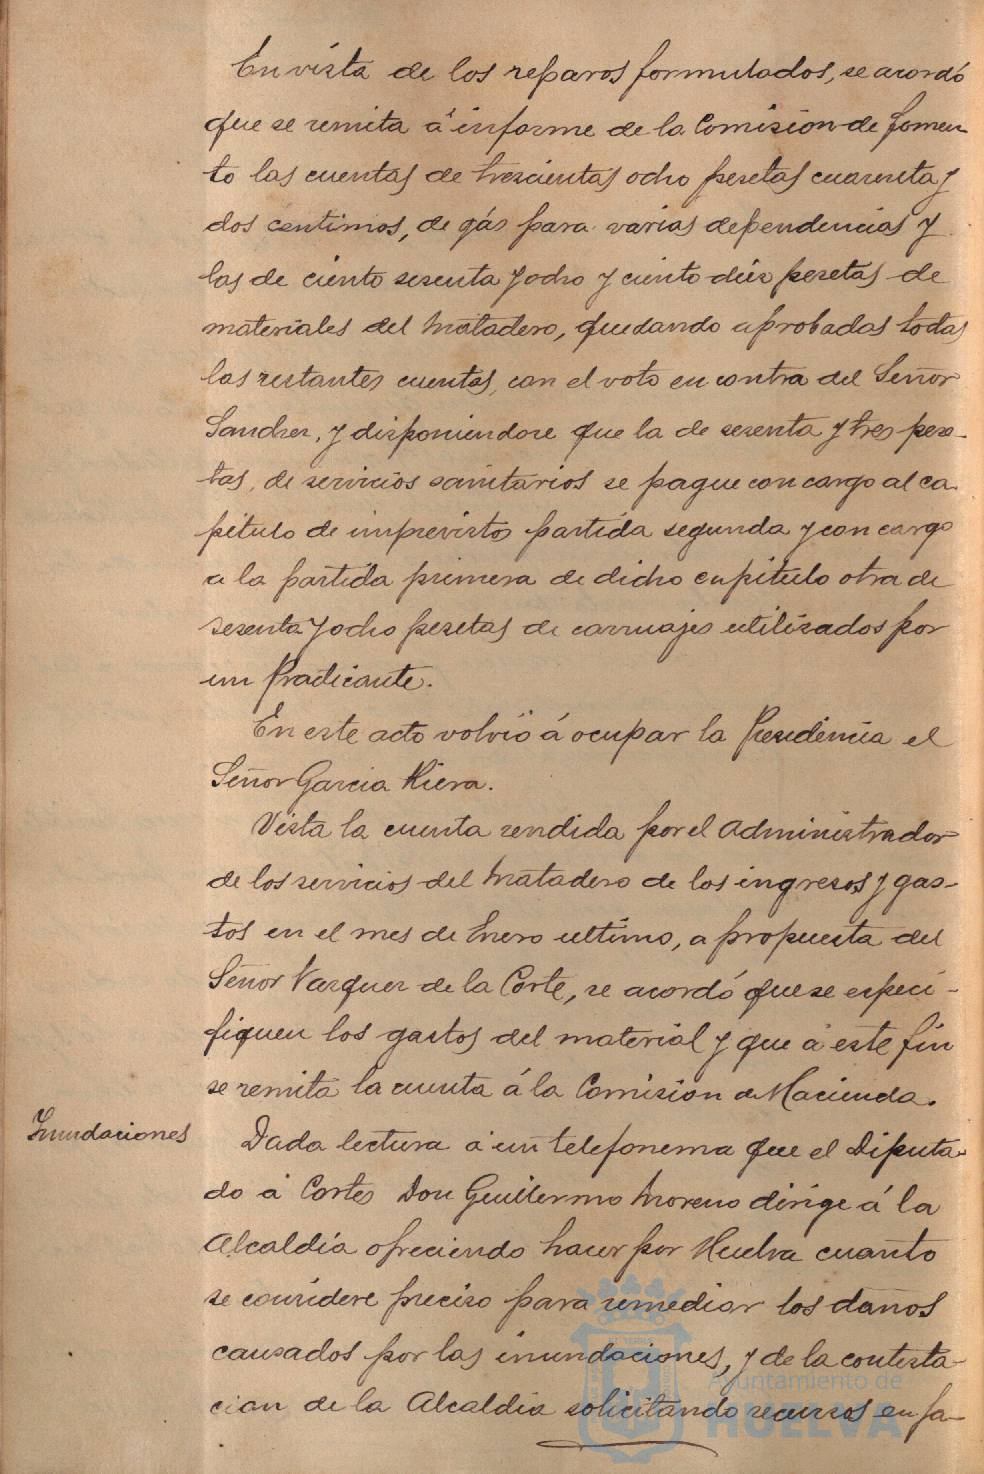 En vista de los reparos formulados, se acordó
que se remita á informe de la Comision de fomen
to las cuentas de trescientas ocho pesetas cuarenta y
dos centimos, de gás para varias dependencias y
las de ciento sesenta y ocho y ciento diez pesetas de
materiales del Matadero, quedando aprobadas todas
las restantes cuentas, con el voto en contra del Señor
Sanchez, y disponiendose que la de sesenta y tres pese-
tas, de servicios sanitarios se pague con cargo al ca-
pitulo de imprevistos partida segunda y con cargo
a la partida primera de dicho capitulo otra de
sesenta y ocho pesetas de carruajes utilizados por
un Practicante.
En este acto volvió á ocupar la Presidencia el
Señor Garcia Riera.
Vista la cuenta rendida por el Administrador
de los servicios del Matadero de los ingresos y gas-
tos en el mes de Enero ultimo, a propuesta del
Señor Vazquez de la Corte, se acordó que se especi-
fiquen los gastos del material y que á este fin
se remita la cuenta á la Comision de Hacienda.
Inundaciones
Dada lectura á un telefonema que el Diputa-
do á Cortes Don Guillermo Moreno dirige á la
Alcaldía ofreciendo hacer por Huelva cuanto
se considere preciso para remediar los daños
causados por las inundaciones, y de la contesta-
cion de la Alcaldia solicitando recursos en fa-
Ayuntamiento de
HUELVA